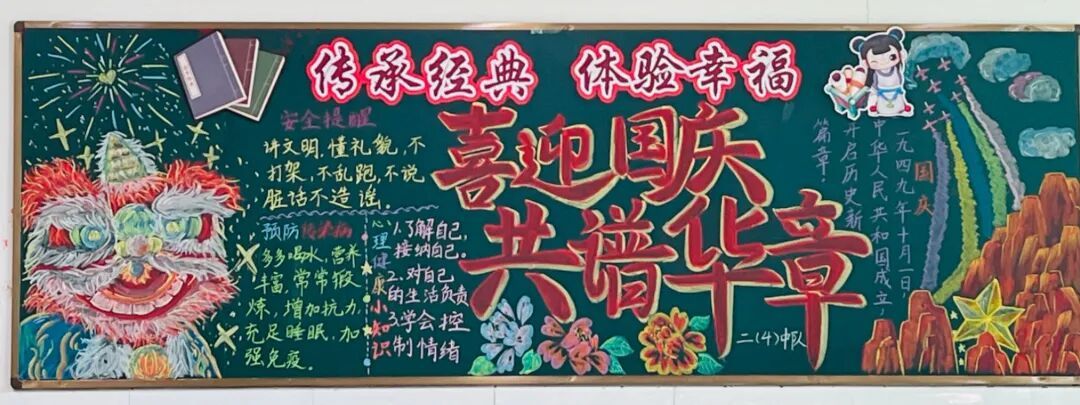 传承经典 体验幸福
喜迎国庆
共谱华章
安全提醒
讲文明,懂礼貌,不
打架,不乱跑,不说
脏话不造谣。
预防传染病
多多喝水,营养
丰富,常常锻
炼,增加抗力,
充足睡眠,加
强免疫。
心理健康小知识
1.了解自己,
接纳自己。
2.对自己
的生活负责
3.学会控
制情绪
国庆
一九四九年十月一日,
中华人民共和国成立,
开启历史新
篇章.
二(4)中队